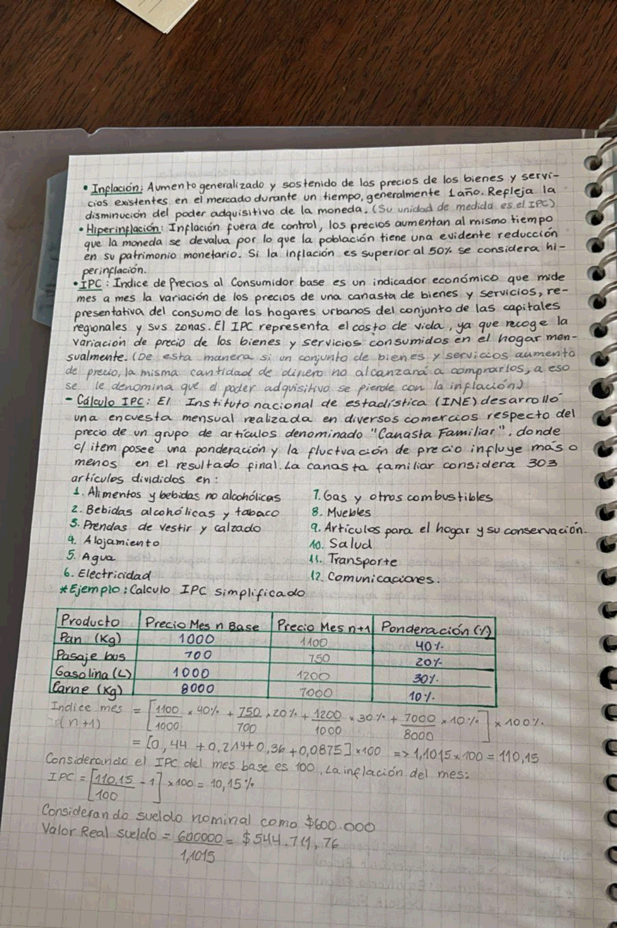 • Inflación: Aumento generalizado y sostenido de los precios de los bienes y servi-
cios existentes en el mercado durante un tiempo, generalmente 1 año. Refleja la
disminución del poder adquisitivo de la moneda. (Su unidad de medida es el IPC)
• Hiperinflación: Inflación fuera de control, los precios aumentan al mismo tiempo
que la moneda se devalua por lo que la población tiene una evidente reducción
en su patrimonio monetario. Si la inflación es superior al 50% se considera hi-
perinflación.
• IPC: Indice de Precios al Consumidor base es un indicador económico que mide
mes a mes la variación de los precios de una canasta de bienes y servicios, re-
presentativa del consumo de los hogares urbanos del conjunto de las capitales
regionales y sus zonas. El IPC representa el costo de vida, ya que recoge la
variación de precio de los bienes y servicios consumidos en el hogar men-
sualmente. (De esta manera si un conjunto de bienes y servicios aumenta
de precio, la misma cantidad de dinero no alcanzará a comprarlos, a eso
se le denomina que el poder adquisitivo se pierde con la inflación)
- Cálculo IPC: El Instituto nacional de estadística (INE) desarrolló
una encuesta mensual realizada en diversos comercios respecto del
precio de un grupo de artículos denominado "Canasta Familiar", donde
c/ item posee una ponderación y la fluctuación de precio influye más o
menos en el resultado final. La canasta familiar considera 303
artículos divididos en:
1. Alimentos y bebidas no alcohólicas
2. Bebidas alcohólicas y tabaco
3. Prendas de vestir y calzado
4. Alojamiento
5. Agua
6. Electricidad
7. Gas y otros combustibles
8. Muebles
9. Artículos para el hogar y su conservación.
10. Salud
11. Transporte
12. Comunicaciones.
* Ejemplo: Calculo IPC simplificado
Producto Precio Mes n Base Precio Mes n+1 Ponderación (%)
Pan (Kg) 1000 1100 40%
Pasaje bus 700 750 20%
Gasolina (L) 1000 1200 30%
Carne (Kg) 8000 7000 10%
Indice mes (n+1) = [1100/1000 × 40% + 750/700 × 20% + 1200/1000 × 30% + 7000/8000 × 10%] × 100%
= [0,44 + 0,214 + 0,36 + 0,0875] × 100 => 1,1015 × 100 = 110,15
Considerando el IPC del mes base es 100. La inflación del mes:
IPC = [110,15/100 - 1] × 100 = 10,15%
Considerando sueldo nominal como $600.000
Valor Real sueldo = 600000/1,1015 = $544.711,76